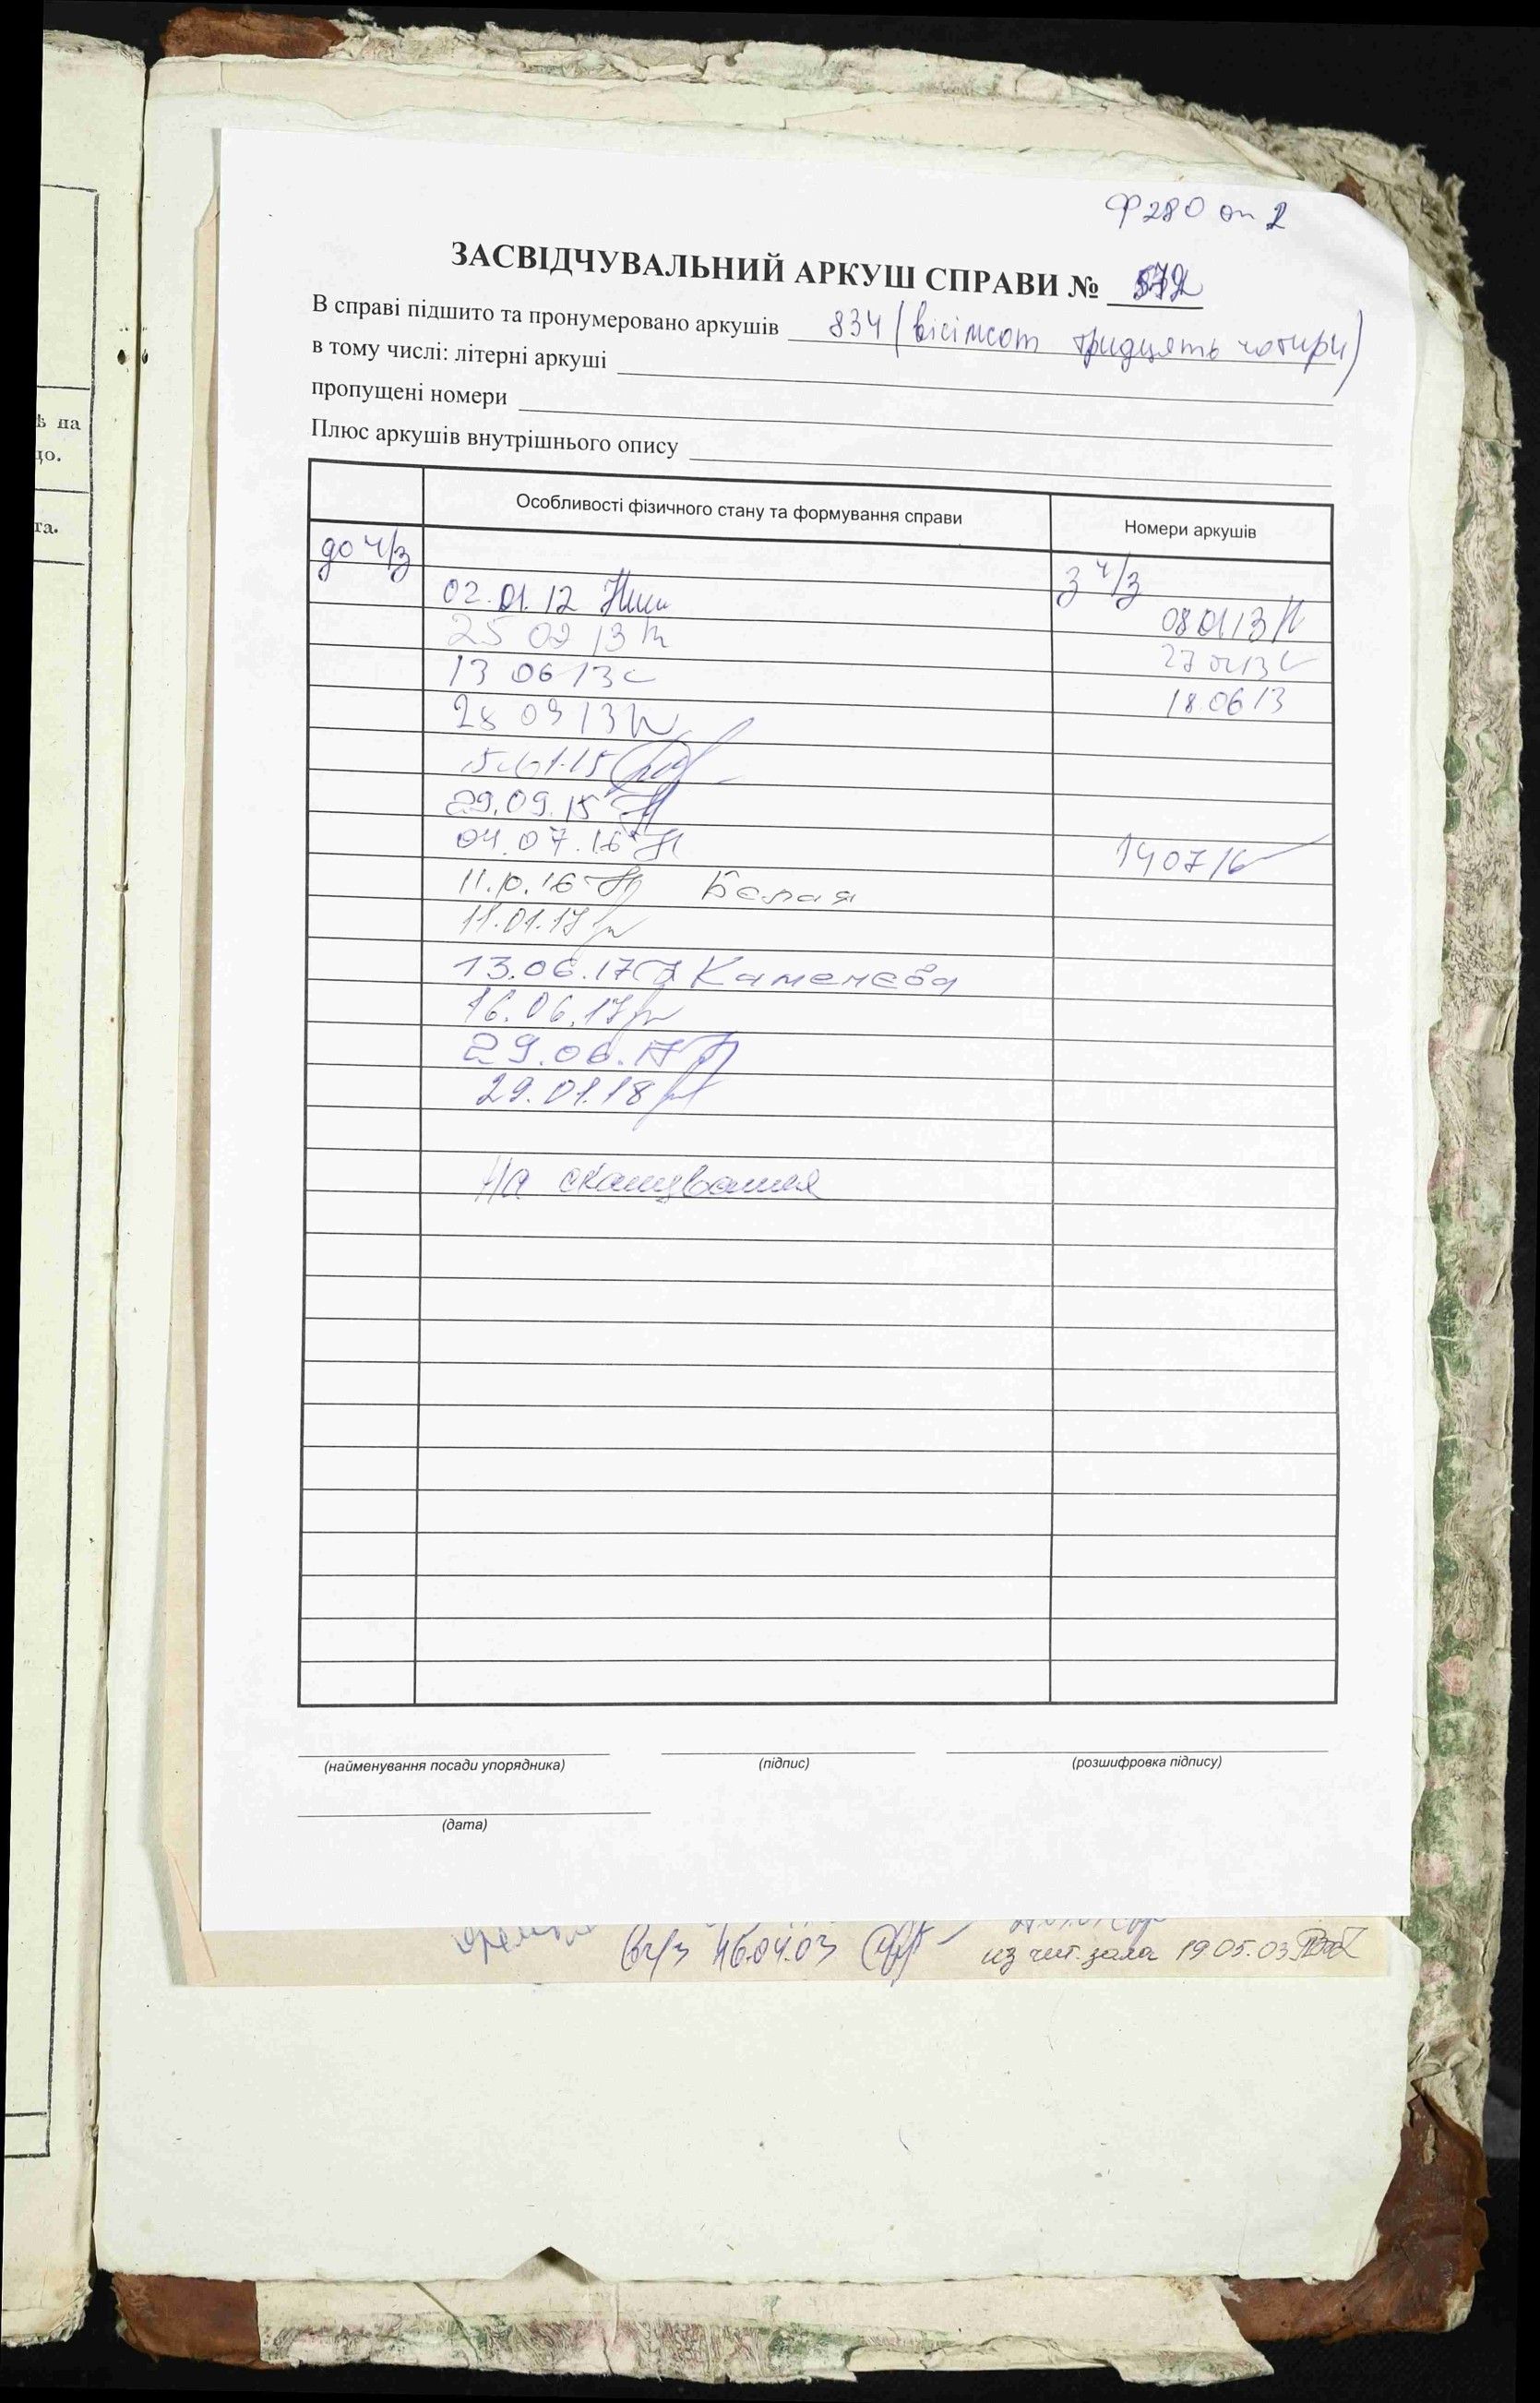 ѣ на
до.
та.
Ф 280 оп 2
ЗАСВІДЧУВАЛЬНИЙ АРКУШ СПРАВИ №
В справі підшито та пронумеровано аркушів 834 (вісімсот тридцять чотири)
в тому числі: літерні аркуші
пропущені номери
Плюс аркушів внутрішнього опису
Особливості фізичного стану та формування справи Номери аркушів
до ч/з з ч/з
02.01.12 08 01 13
25 02 13
13 06 13 18.06 13
28 09 13
29.09.15
04.07.16 14 07 16
11.10.16 Белая
11.01.17
13.06.17 Каменева
16.06.17
29.06.17
29.01.18
На сканування
(найменування посади упорядника) (підпис) (розшифровка підпису)
(дата)
в ч/з 16.04.03 из чит. зала 19.05.03